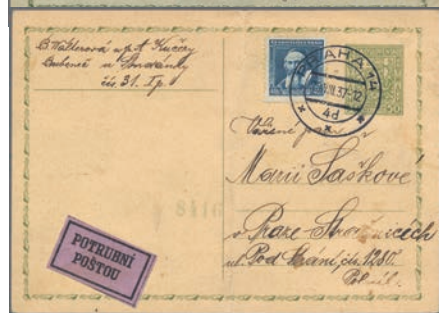 B. Walterová u p. A. Kučery
Bubeneč u Stromovky
čís. 31. I p.
PRAHA 14
VIII.37-12
4d
Vážené paní
Marii Saškové
v Praze-Strašnicích
ul. Pod Strání, čís. 1280.
POTRUBNÍ
POŠTOU